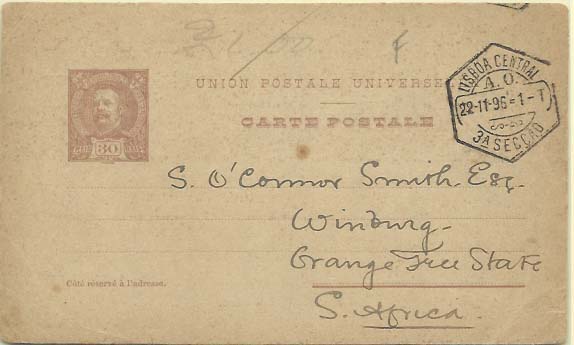 UNION POSTALE UNIVERSE
CARTE POSTALE
LISBOA CENTRAL
A. O.
22-11-96=1-T
3A SECÇÃO
80
S. O'Connor Smith. Esq.
Winburg-
Orange Free State
S. Africa.
Côté réservé à l'adresse.